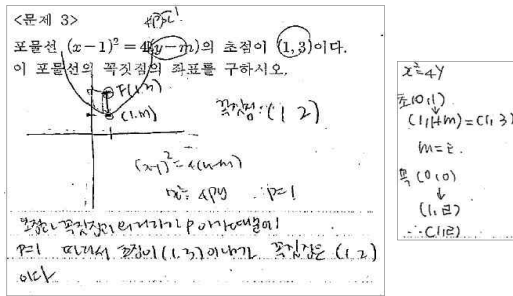 <문제 3>
4P=4
포물선 (x-1)² = 4(y-m)의 초점이 (1,3)이다.
이 포물선의 꼭짓점의 좌표를 구하시오.
F(1,3)
(1,m)
꼭짓점:(1,2)
(x-1)²=4(y-m)
x²=4py ∴p=1
초점과 꼭짓점과의 거리가 p 이기 때문에
P=1 따라서 초점이 (1,3)이니까 꼭짓점은 (1,2)
이다
x²=4y
초(0,1)
↓
(1,1+m)=(1,3)
m=2.
꼭(0,0)
↓
(1,2)
∴(1,2)